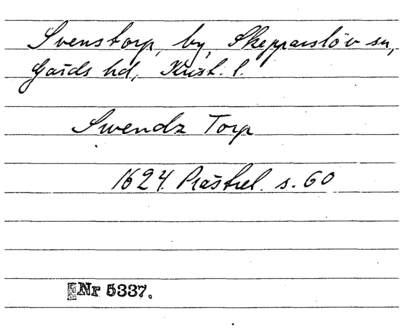 Svenstorp, by, Skepparslöv sn,
Gärds hd, Krist. l.
Swendz Torp
1624. Prästrel. s. 60
Nr 5337.